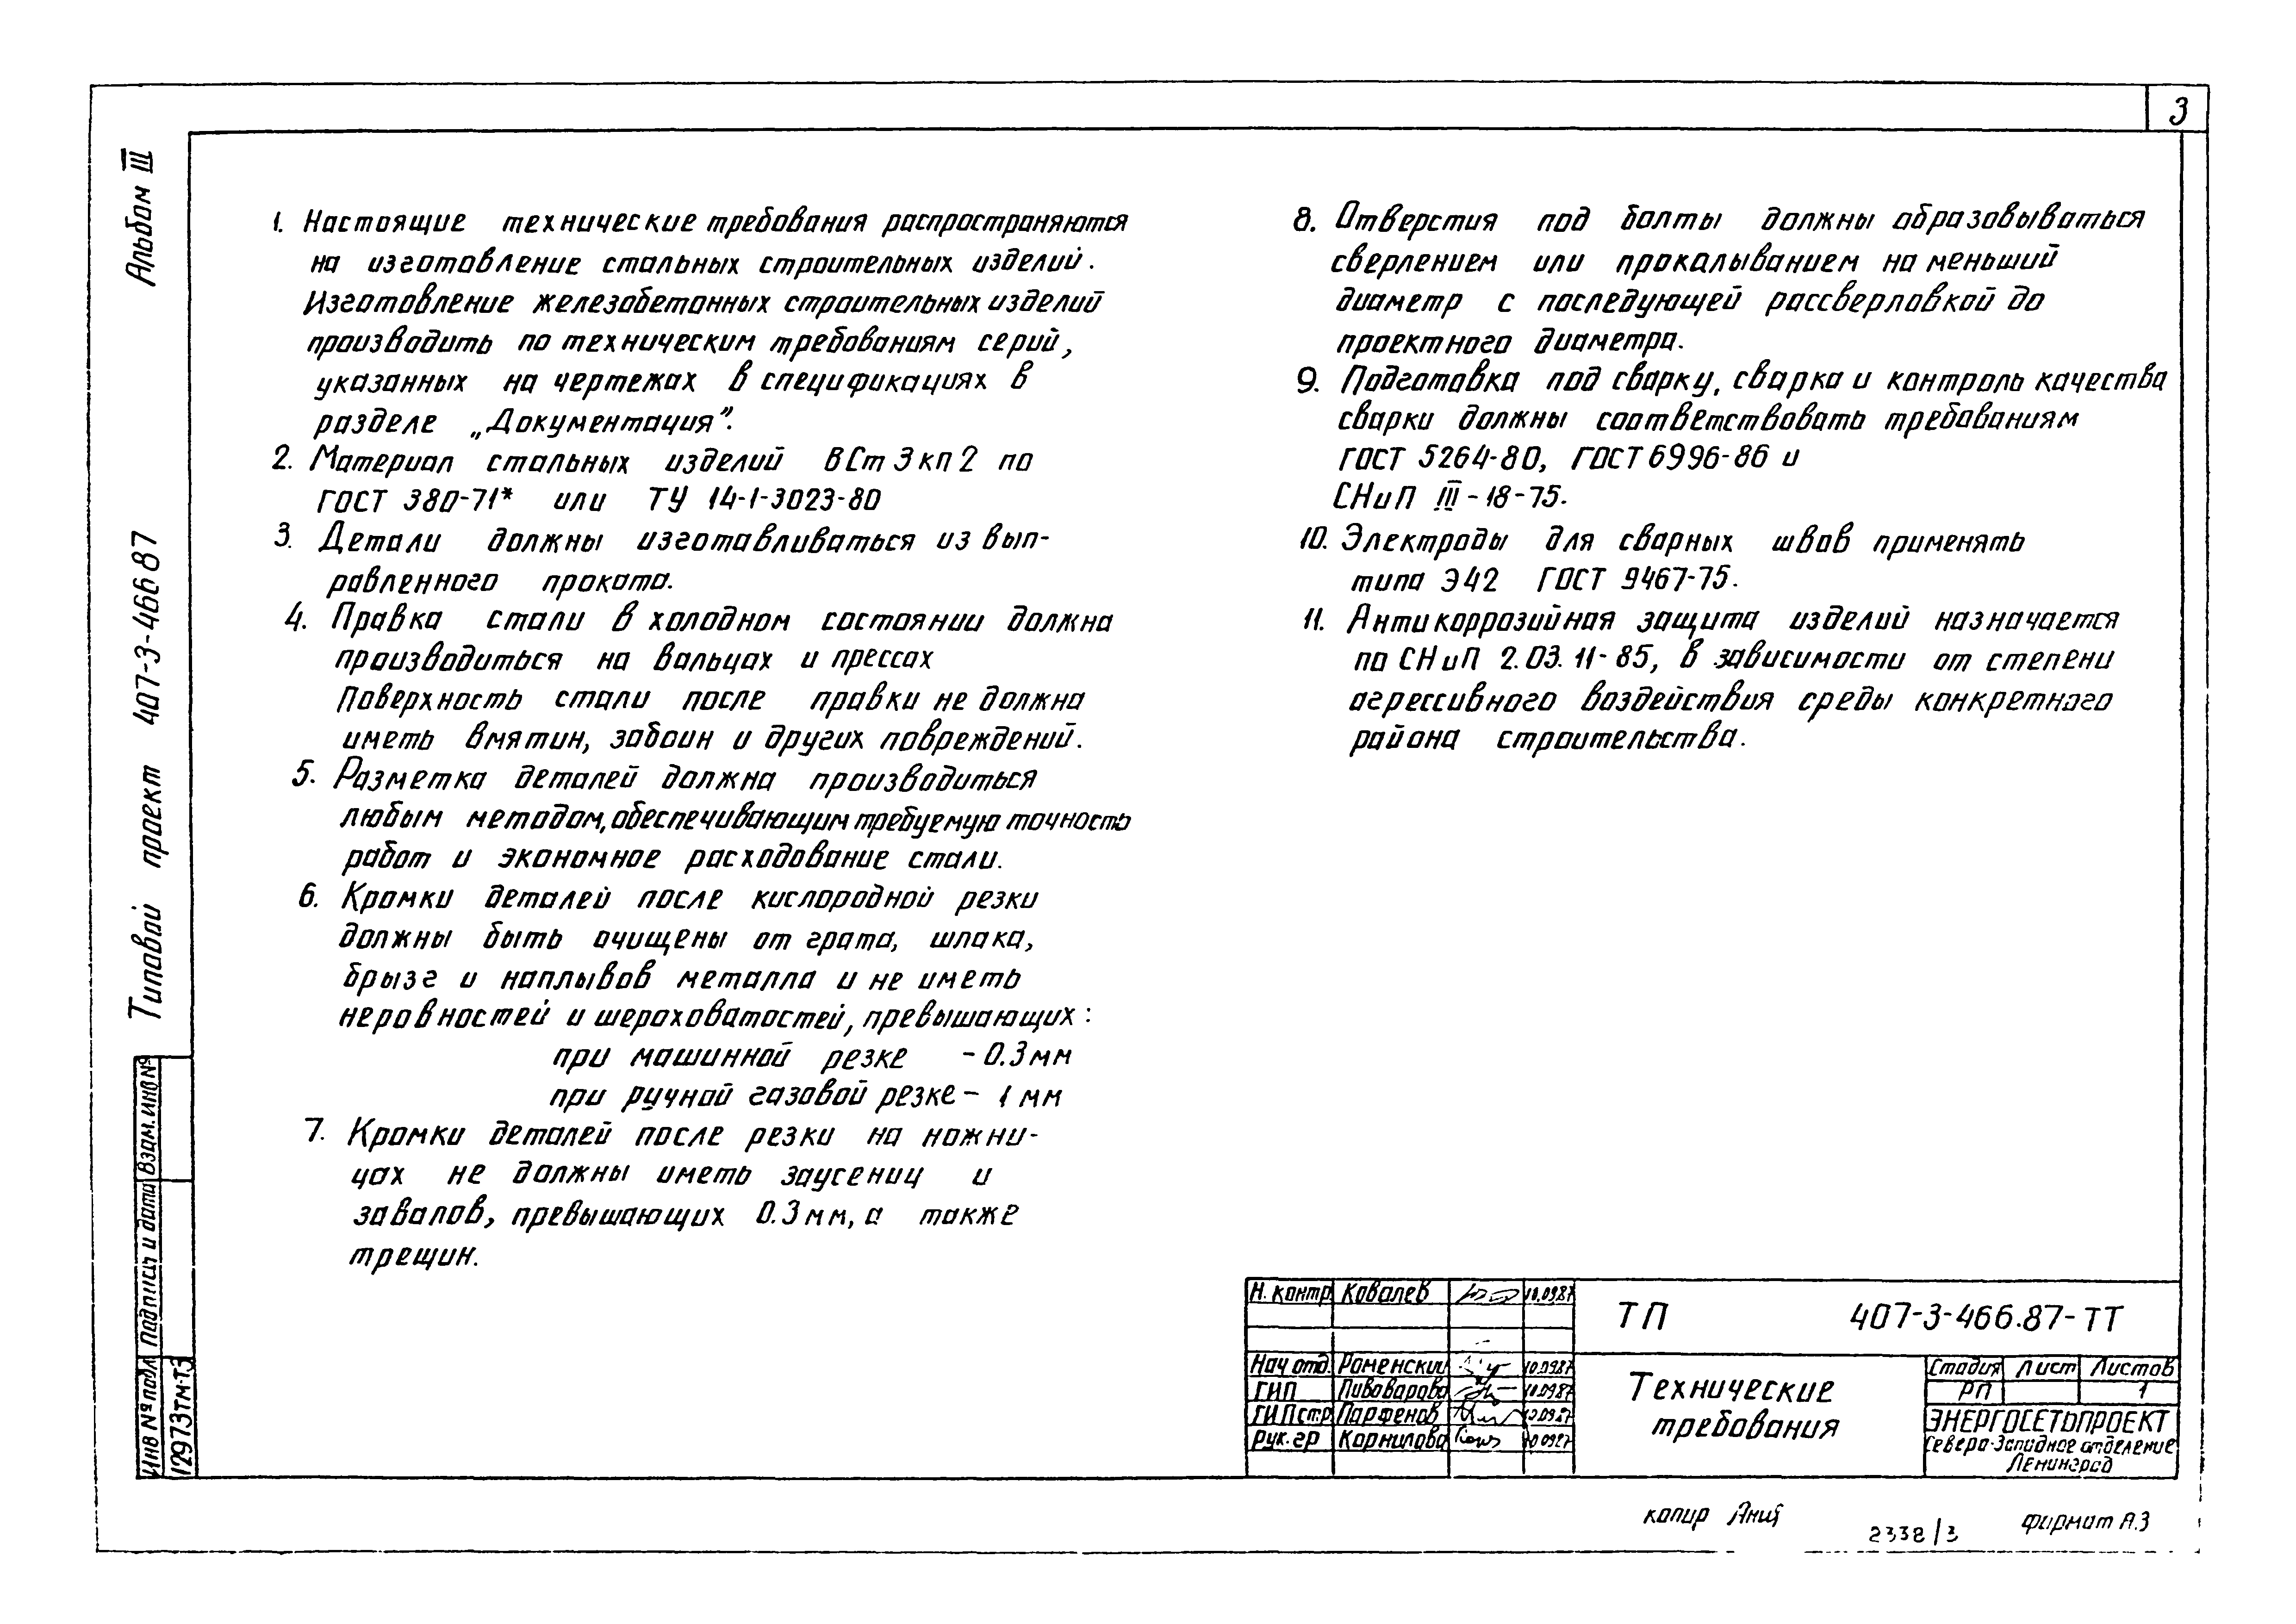 3
Альбом III
Типовой проект 407-3-466 87
1. Настоящие технические требования распространяются
на изготовление стальных строительных изделий.
Изготовление железобетонных строительных изделий
производить по техническим требованиям серий,
указанных на чертежах в спецификациях в
разделе „Документация”.
2. Материал стальных изделий ВСт 3 кп 2 по
ГОСТ 380-71* или ТУ 14-1-3023-80
3. Детали должны изготавливаться из вып-
равленного проката.
4. Правка стали в холодном состоянии должна
производиться на вальцах и прессах
Поверхность стали после правки не должна
иметь вмятин, забоин и других повреждений.
5. Разметка деталей должна производиться
любым методом, обеспечивающим требуемую точность
работ и экономное расходование стали.
6. Кромки деталей после кислородной резки
должны быть очищены от грата, шлака,
брызг и наплывов металла и не иметь
неровностей и шероховатостей, превышающих:
при машинной резке - 0.3 мм
при ручной газовой резке - 1 мм
7. Кромки деталей после резки на ножни-
цах не должны иметь заусениц и
завалов, превышающих 0.3 мм, а также
трещин.
8. Отверстия под болты должны образовываться
сверлением или прокалыванием на меньший
диаметр с последующей рассверловкой до
проектного диаметра.
9. Подготовка под сварку, сварка и контроль качества
сварки должны соответствовать требованиям
ГОСТ 5264-80, ГОСТ 6996-86 и
СНиП III-18-75.
10. Электроды для сварных швов применять
типа Э42 ГОСТ 9467-75.
11. Антикоррозийная защита изделий назначается
по СНиП 2.03.11-85, в зависимости от степени
агрессивного воздействия среды конкретного
района строительства.
Взам. инв №
Подпись и дата
Инв № подл
12973тм-т3
Н. контр Ковалев 10.0987
Нач отд. Роменский 10.0987
ГИП Пивоварова 10.0987
ГИП стр Парфенов 10.0987
Рук. гр Корнилова 10 0987
ТП 407-3-466.87-ТТ
Технические
требования
Стадия Лист Листов
РП 1
ЭНЕРГОСЕТЬПРОЕКТ
Северо-Западное отделение
Ленинград
копир
2338/3
формат А.3